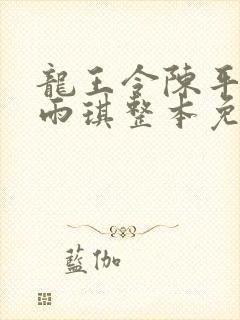 龍王令陳平
雨琪整本免
藍伽